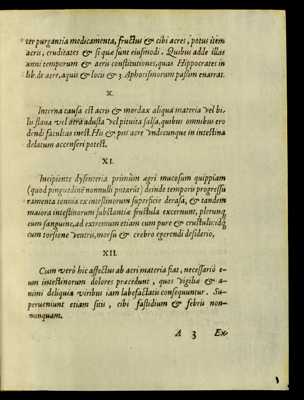 ter purgantia medicamenta, fructus & cibi acres, potus item
acris, cruditates & si quæ sunt eiusmodi. Quibus adde illas
anni temporum & aeris constitutiones, quas Hippocrates in
lib. de aere, aquis & locis & 3. Aphorismorum passim enarrat.
X.
Interna causa est acris & mordax aliqua materia vel bi-
lis flaua vel atra adusta vel pituita salsa, quibus omnibus ero
dendi facultas inest. His & pus acre vndecunque in intestina
delatum accenseri potest.
XI.
Incipiente dysenteria primùm ægri mucosum quippiam
(quod pinguedinē nonnulli putarūt) deinde temporis progressu
ramenta tenuia ex intestinorum superficie derasa, & tandem
maiora intestinorum substantiæ frustula excernunt, plerunq;
cum sanguine, ad extremum etiam cum pure & crustulis: idq;
cum torsione ventris, morsu & crebro egerendi desiderio,
XII.
Cum verò hic affectus ab acri materia fiat, necessariò e-
um intestinorum dolores præcedunt, quos vigiliæ & a-
nimi deliquia viribus iam labefactatis consequuntur. Su-
perueniunt etiam sitis, cibi fastidium & febris non-
nunquam.
A 3 Ex-